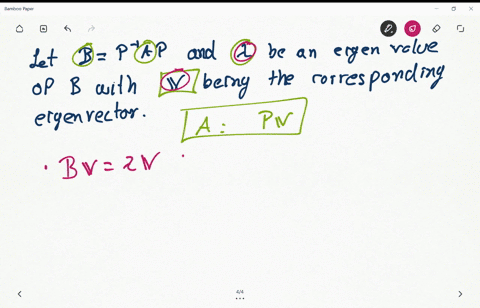 Bamboo Paper
Let B = P⁻¹AP and λ be an eigen value
of B with v being the corresponding
eigenvector.
A : Pv
· Bv = λv ·
4/4